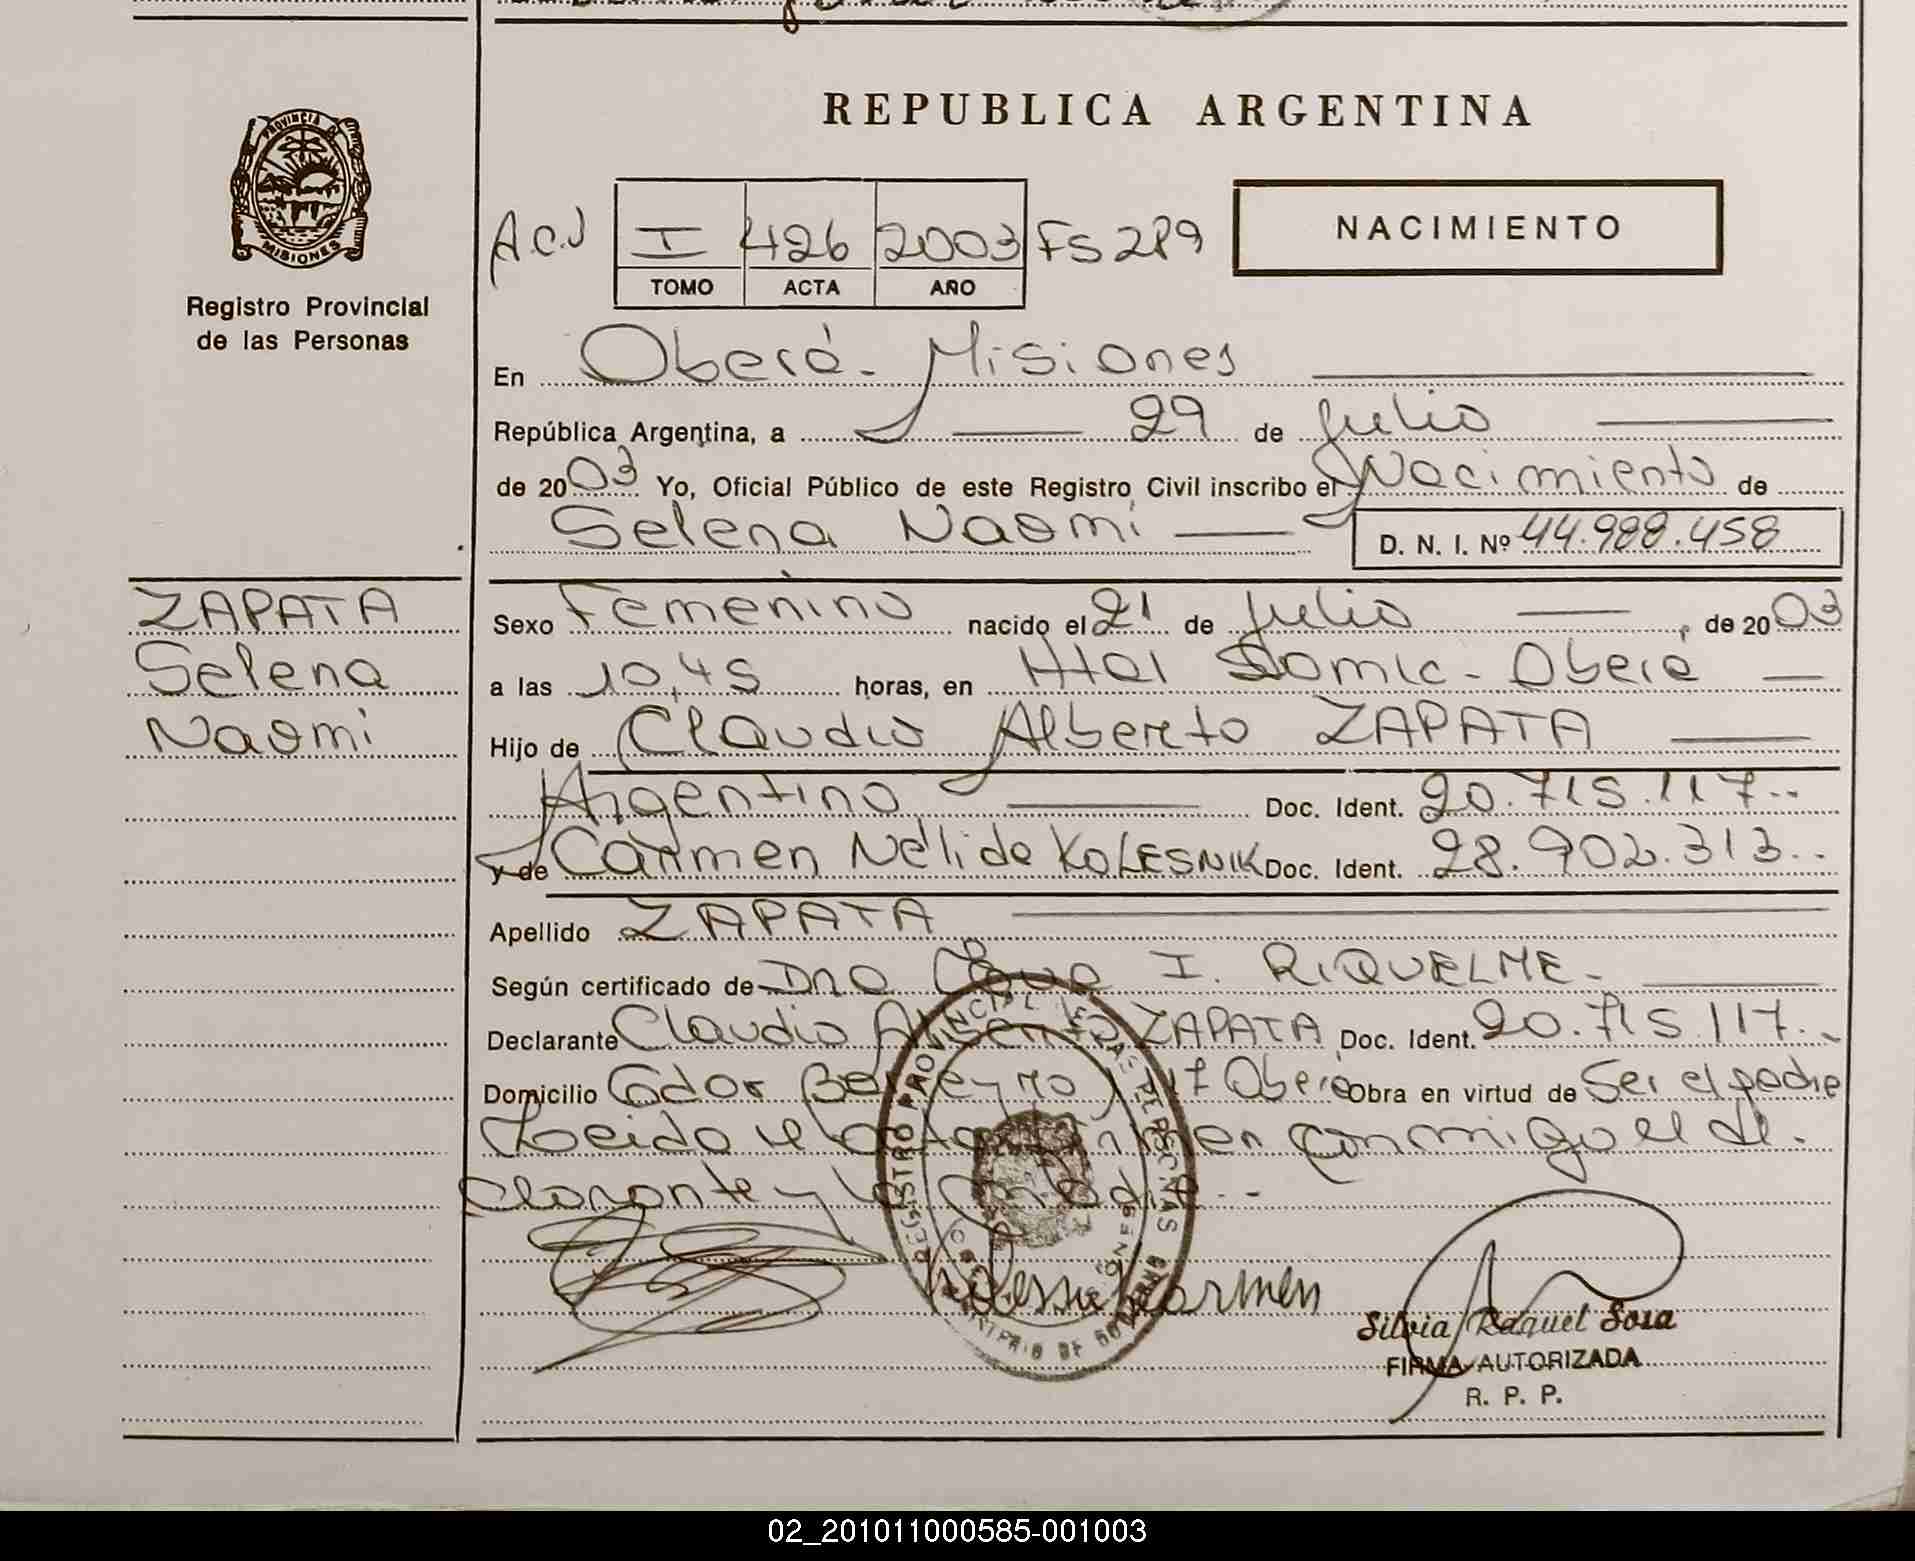 REPUBLICA ARGENTINA
PROVINCIA D
MISIONES
Registro Provincial
de las Personas
A.C.J I 426 2003 FS 289
TOMO ACTA AÑO
NACIMIENTO
En Oberá - Misiones
República Argentina, a 29 de Julio
de 2003 Yo, Oficial Público de este Registro Civil inscribo el Nacimiento de
Selena Naomi D. N. I. Nº 44.988.458
ZAPATA
Selena
Naomi
Sexo Femenino nacido el 21 de Julio, de 2003
a las 10,45 horas, en Htal Samic - Oberá
Hijo de Claudio Alberto ZAPATA
Argentino Doc. Ident. 20.715.117..
y de Carmen Nélida KOLESNIK Doc. Ident. 28.902.313..
Apellido ZAPATA
Según certificado de Dra I. RIQUELME -
Declarante Claudio Alberto ZAPATA Doc. Ident. 20.715.117..
Domicilio Gdor Oberá Obra en virtud de Ser el padre
Leida el acta firman conmigo el de-
clarante y la madre..
REGISTRO PROVINCIAL DE LAS PERSONAS
Carmen
Silvia Raquel Sosa
FIRMA AUTORIZADA
R. P. P.
02_201011000585-001003